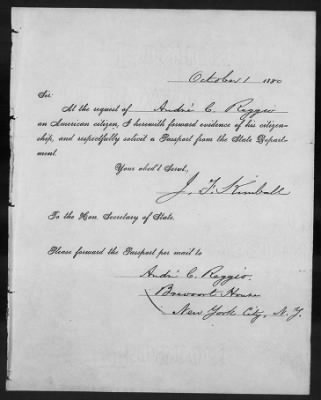 October 1 1880
Sir
At the request of André C. Reggio
an American citizen, I herewith forward evidence of his citizen-
ship, and respectfully solicit a Passport from the State Depart-
ment.
Your obed't Servt,
J. F. Kimball
To the Hon. Secretary of State.
Please forward the Passport per mail to
André C. Reggio.
Brevoort House
New York City, N. Y.